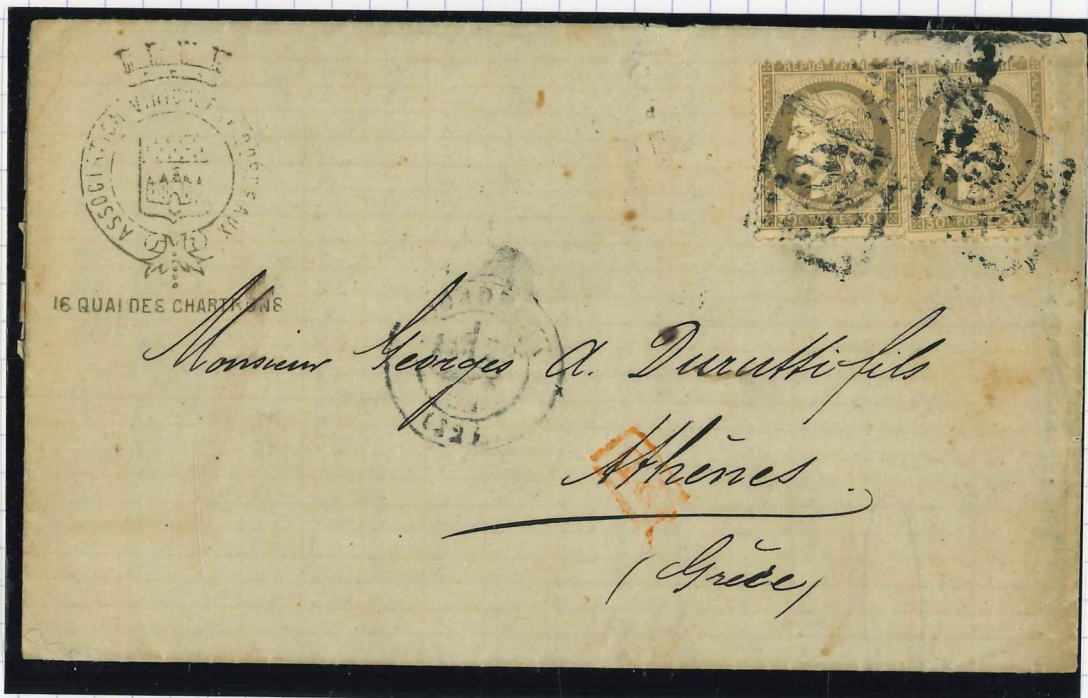 ASSOCIATION VINICOLE BORDEAUX
16 QUAI DES CHARTRONS
REPUB FRANC
30 C POSTES 30
30 POSTES 30
(32)
Monsieur Georges A. Durutti fils
Athènes
(Grèce)